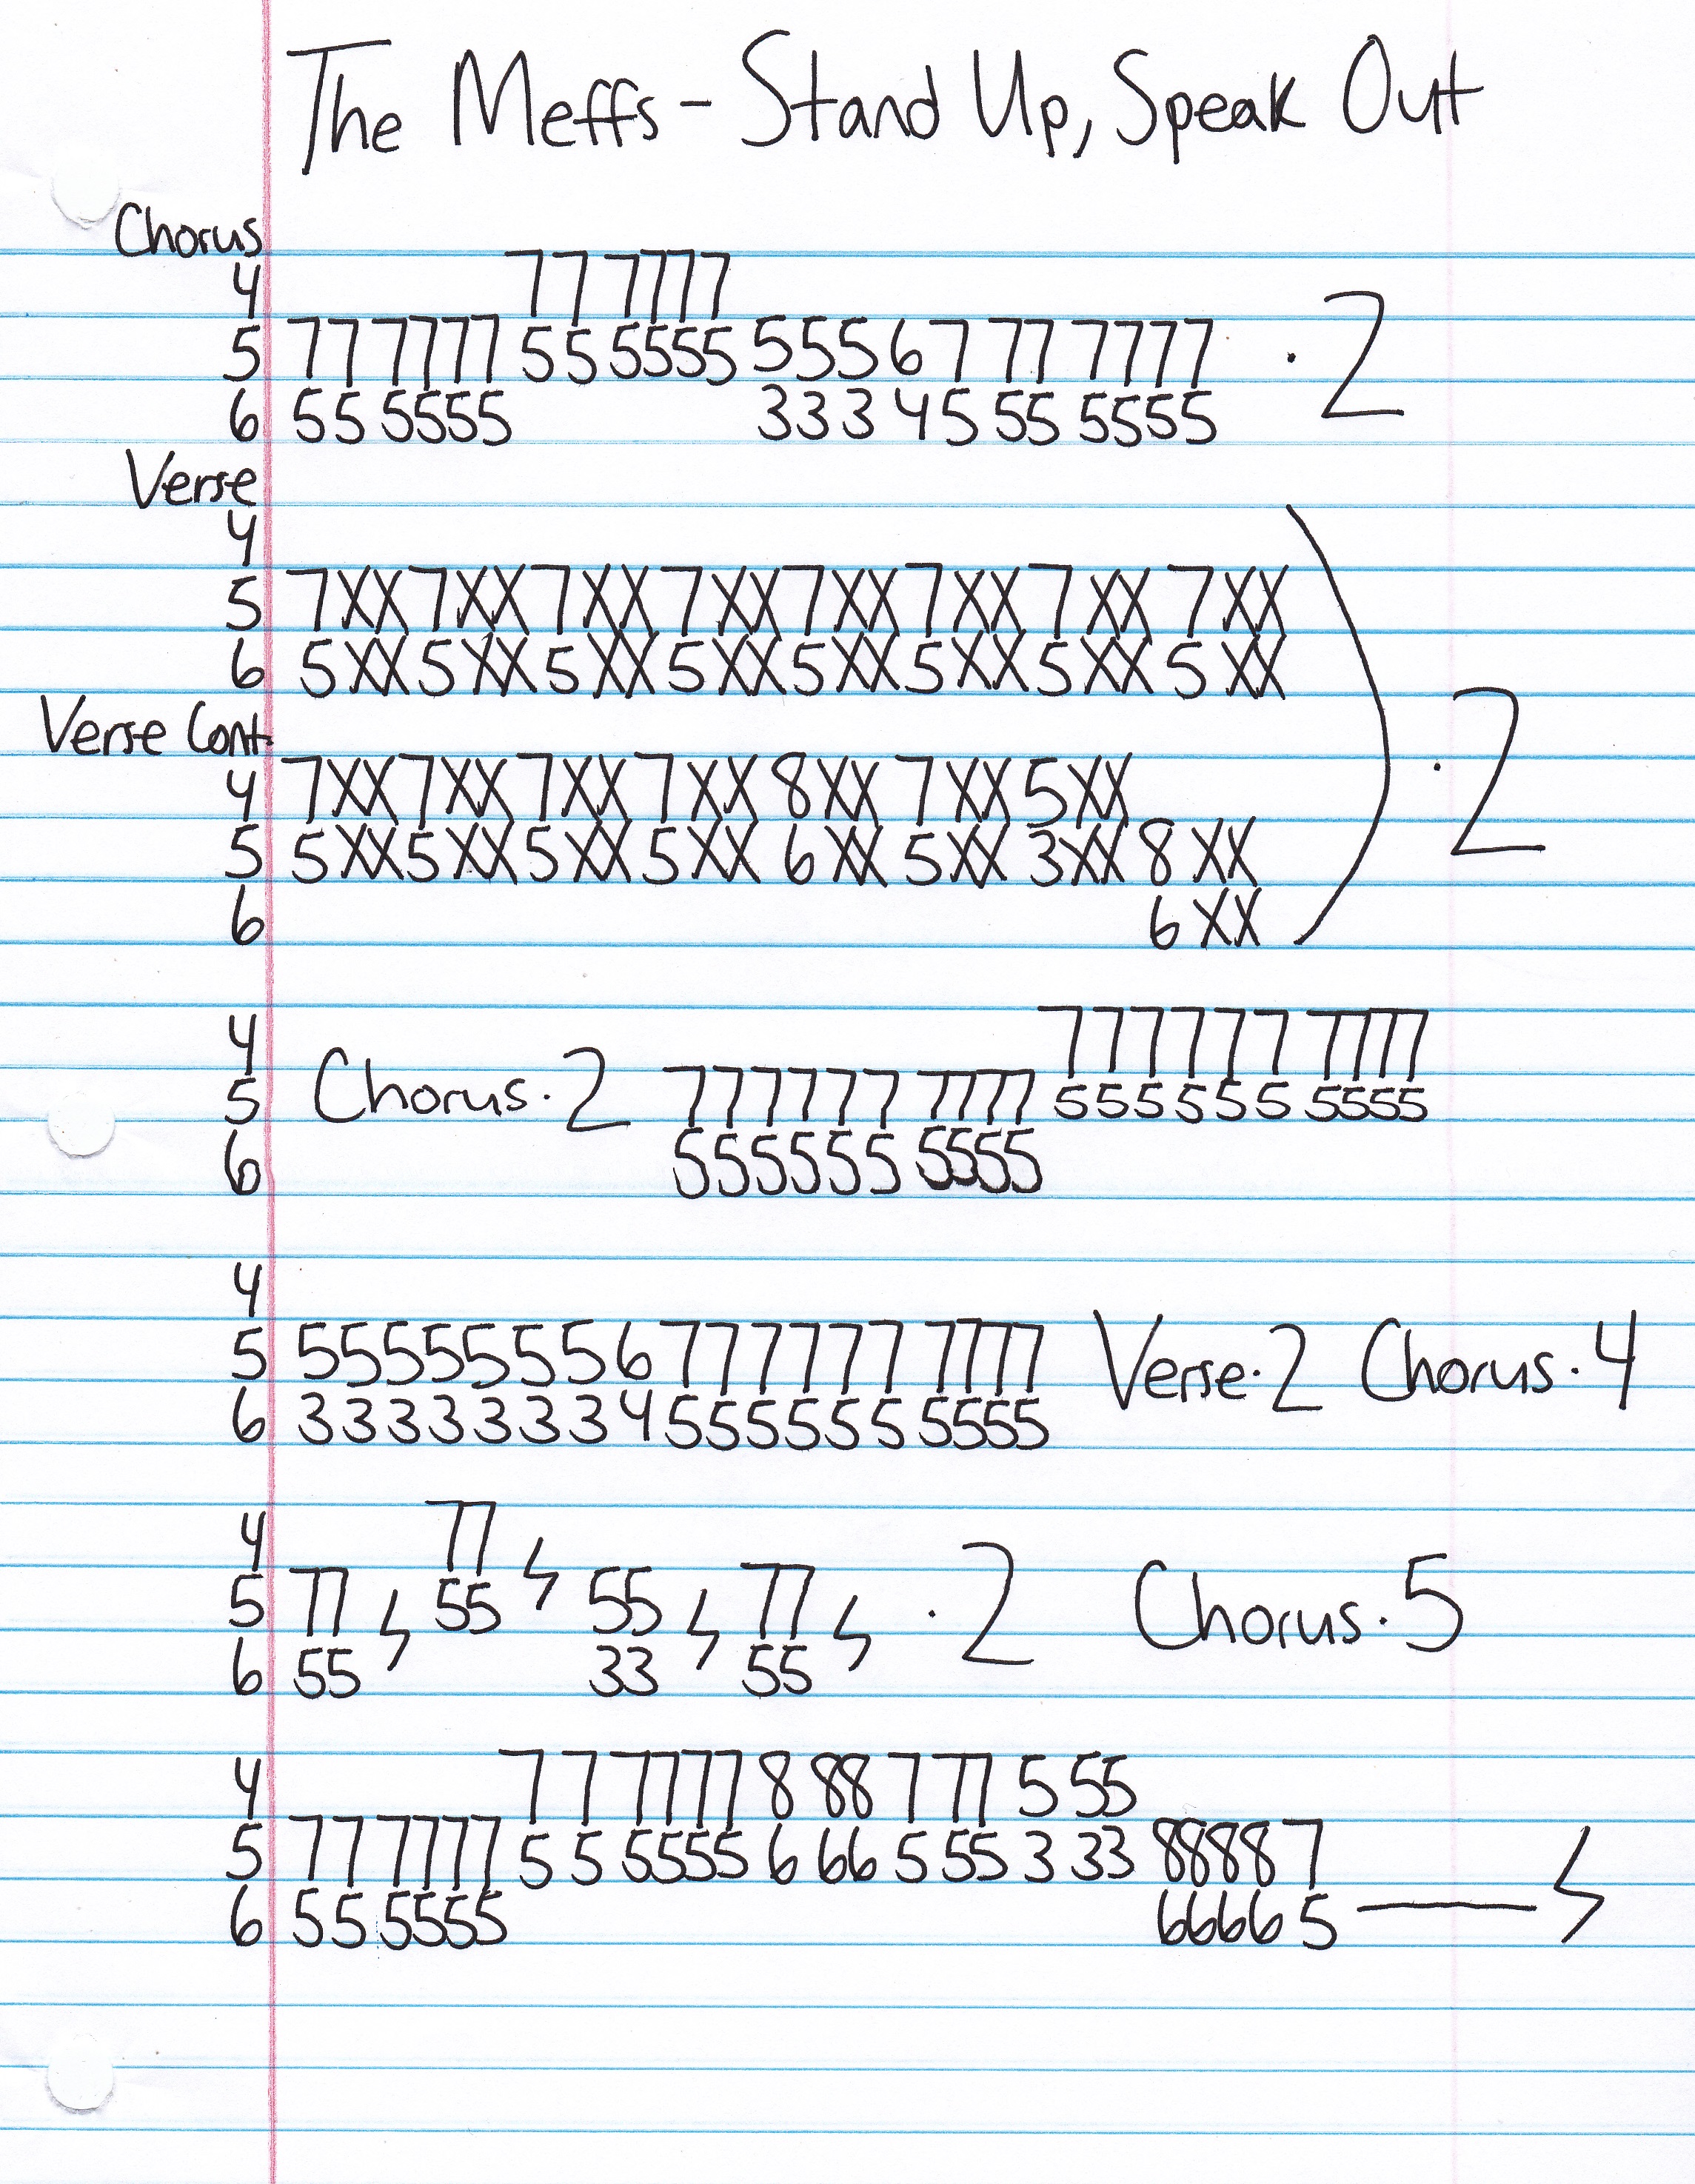 The Meffs - Stand Up, Speak Out
Chorus
4 77 7777
5 77 7777 55 5555 555677777777 · 2
6 55 5555 333 45 55 5555
Verse
4
5 7XX7XX7XX7XX7XX7XX7XX7XX
6 5XX5XX5XX5XX5XX5XX5XX5XX · 2
Verse Cont.
4 7XX7XX7XX7XX8XX7XX5XX
5 5XX5XX5XX5XX6XX5XX3XX8XX
6 6XX
4 777777 7777
5 Chorus · 2 777777 7777 555555 5555
6 555555 5555
4
5 555555556777777 7777 Verse · 2 Chorus · 4
6 333333334555555 5555
4 77
5 77 ϟ 55 ϟ 55 ϟ 77 ϟ · 2 Chorus · 5
6 55 33 55
4 77 7777 8 88 7 77 5 55
5 77 7777 55 5555 6 66 5 55 3 33 8888 7
6 55 5555 6666 5 — ϟ